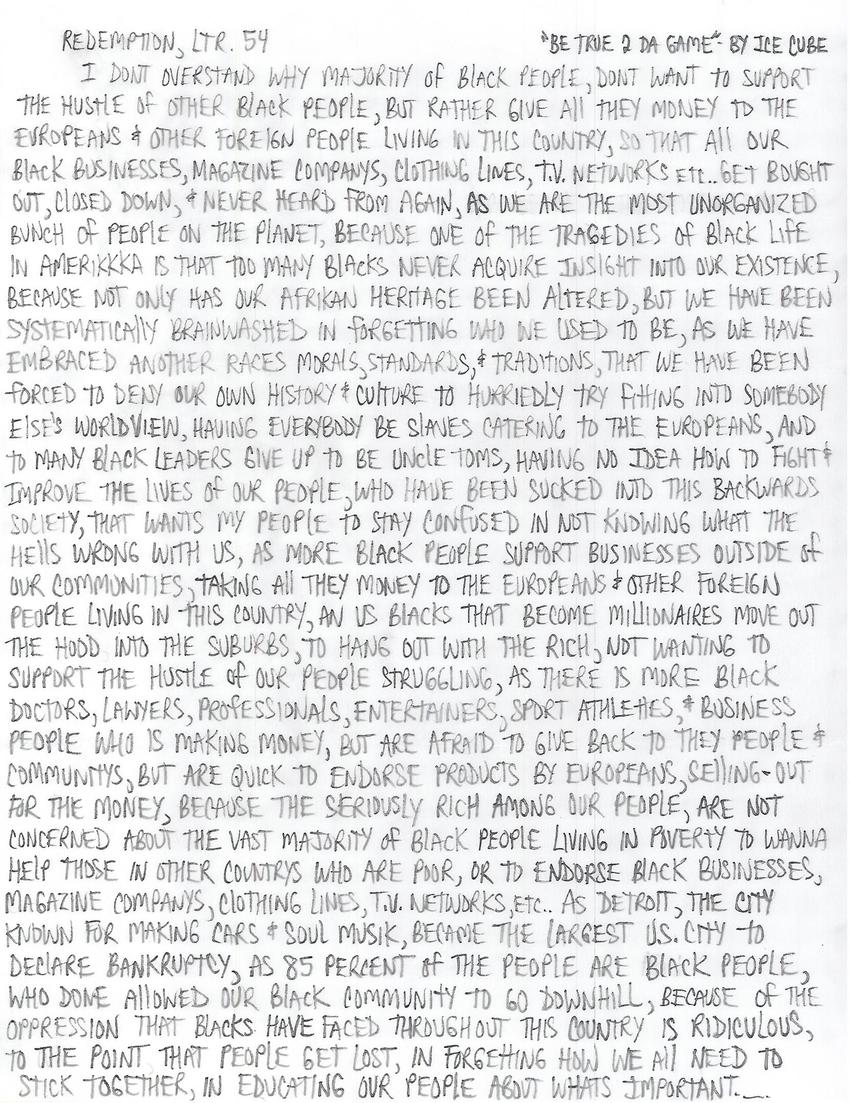 REDEMPTION, LTR. 54 "BE TRUE 2 DA GAME" - BY ICE CUBE
I DONT OVERSTAND WHY MAJORITY OF BLACK PEOPLE, DONT WANT TO SUPPORT
THE HUSTLE OF OTHER BLACK PEOPLE, BUT RATHER GIVE All THEY MONEY TO THE
EUROPEANS & OTHER FOREIGN PEOPLE LIVING IN THIS COUNTRY, SO THAT All OUR
BLACK BUSINESSES, MAGAZINE COMPANYS, CLOTHING LINES, T.V. NETWORKS ETC.. GET BOUGHT
OUT, CLOSED DOWN, & NEVER HEARD FROM AGAIN, AS WE ARE THE MOST UNORGANIZED
BUNCH OF PEOPLE ON THE PLANET, BECAUSE ONE OF THE TRAGEDIES OF BLACK LIFE
IN AMERIKKKA IS THAT TOO MANY BLACKS NEVER ACQUIRE INSIGHT INTO OUR EXISTENCE,
BECAUSE NOT ONLY HAS OUR AFRIKAN HERITAGE BEEN ALTERED, BUT WE HAVE BEEN
SYSTEMATICALLY BRAINWASHED IN FORGETTING WHO WE USED TO BE, AS WE HAVE
EMBRACED ANOTHER RACES MORALS, STANDARDS, & TRADITIONS, THAT WE HAVE BEEN
FORCED TO DENY OUR OWN HISTORY & CULTURE TO HURRIEDLY TRY FITTING INTO SOMEBODY
ELSE'S WORLDVIEW, HAVING EVERYBODY BE SLAVES CATERING TO THE EUROPEANS, AND
TO MANY BLACK LEADERS GIVE UP TO BE UNCLE TOMS, HAVING NO IDEA HOW TO FIGHT &
IMPROVE THE LIVES OF OUR PEOPLE, WHO HAVE BEEN SUCKED INTO THIS BACKWARDS
SOCIETY, THAT WANTS MY PEOPLE TO STAY CONFUSED IN NOT KNOWING WHAT THE
HELLS WRONG WITH US, AS MORE BLACK PEOPLE SUPPORT BUSINESSES OUTSIDE OF
OUR COMMUNITIES, TAKING All THEY MONEY TO THE EUROPEANS & OTHER FOREIGN
PEOPLE LIVING IN THIS COUNTRY, AN US BLACKS THAT BECOME MILLIONAIRES MOVE OUT
THE HOOD INTO THE SUBURBS, TO HANG OUT WITH THE RICH, NOT WANTING TO
SUPPORT THE HUSTLE OF OUR PEOPLE STRUGGLING, AS THERE IS MORE BLACK
DOCTORS, LAWYERS, PROFESSIONALS, ENTERTAINERS, SPORT ATHLETES, & BUSINESS
PEOPLE WHO IS MAKING MONEY, BUT ARE AFRAID TO GIVE BACK TO THEY PEOPLE &
COMMUNITYS, BUT ARE QUICK TO ENDORSE PRODUCTS BY EUROPEANS, SELLING-OUT
FOR THE MONEY, BECAUSE THE SERIOUSLY RICH AMONG OUR PEOPLE, ARE NOT
CONCERNED ABOUT THE VAST MAJORITY OF BLACK PEOPLE LIVING IN POVERTY TO WANNA
HELP THOSE IN OTHER COUNTRYS WHO ARE POOR, OR TO ENDORSE BLACK BUSINESSES,
MAGAZINE COMPANYS, CLOTHING LINES, T.V. NETWORKS, ETC.. AS DETROIT, THE CITY
KNOWN FOR MAKING CARS & SOUL MUSIK, BECAME THE LARGEST U.S. CITY TO
DECLARE BANKRUPTCY, AS 85 PERCENT OF THE PEOPLE ARE BLACK PEOPLE,
WHO DONE ALLOWED OUR BLACK COMMUNITY TO GO DOWNHILL, BECAUSE OF THE
OPPRESSION THAT BLACKS HAVE FACED THROUGHOUT THIS COUNTRY IS RIDICULOUS,
TO THE POINT THAT PEOPLE GET LOST, IN FORGETTING HOW WE All NEED TO
STICK TOGETHER, IN EDUCATING OUR PEOPLE ABOUT WHATS IMPORTANT.....